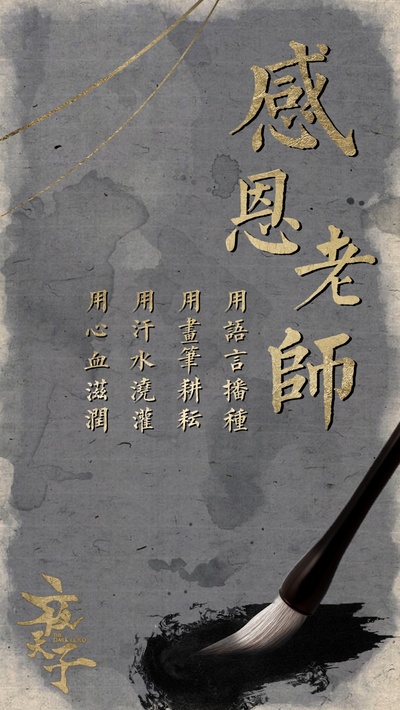 感恩老師
用語言播種
用畫筆耕耘
用汗水澆灌
用心血滋潤
夜天子